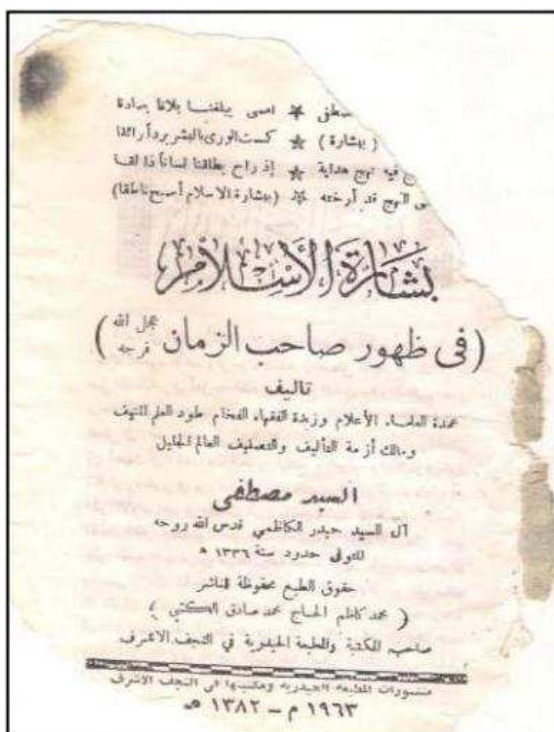 صطفى * امسى يبلغنا بلاغا
(بشارة) * كست الورى بالبشر برداً
فيه نهج هداية * إذ راح لساناً
النهج قد أرخته * (بشارة الاسلام أصبح ناطقا)
بشارة الأسلام
(في ظهور صاحب الزمان عجل الله فرجه)
تاليف
عمدة العلماء الأعلام وزبدة الفقهاء الفخام طود العلم المنيف
ومالك أزمة التأليف والتصنيف العالم الجليل
السيد مصطفى
آل السيد حيدر الكاظمي قدس الله روحه
المتوفى حدود سنة ١٣٣٦ هـ
حقوق الطبع محفوظة للناشر
(محمد كاظم الحاج محمد صادق الكتبي)
صاحب المكتبة والمطبعة الحيدرية في النجف الاشرف
منشورات المطبعة الحيدرية ومكتبتها في النجف الاشرف
١٩٦٣ م - ١٣٨٢ هـ